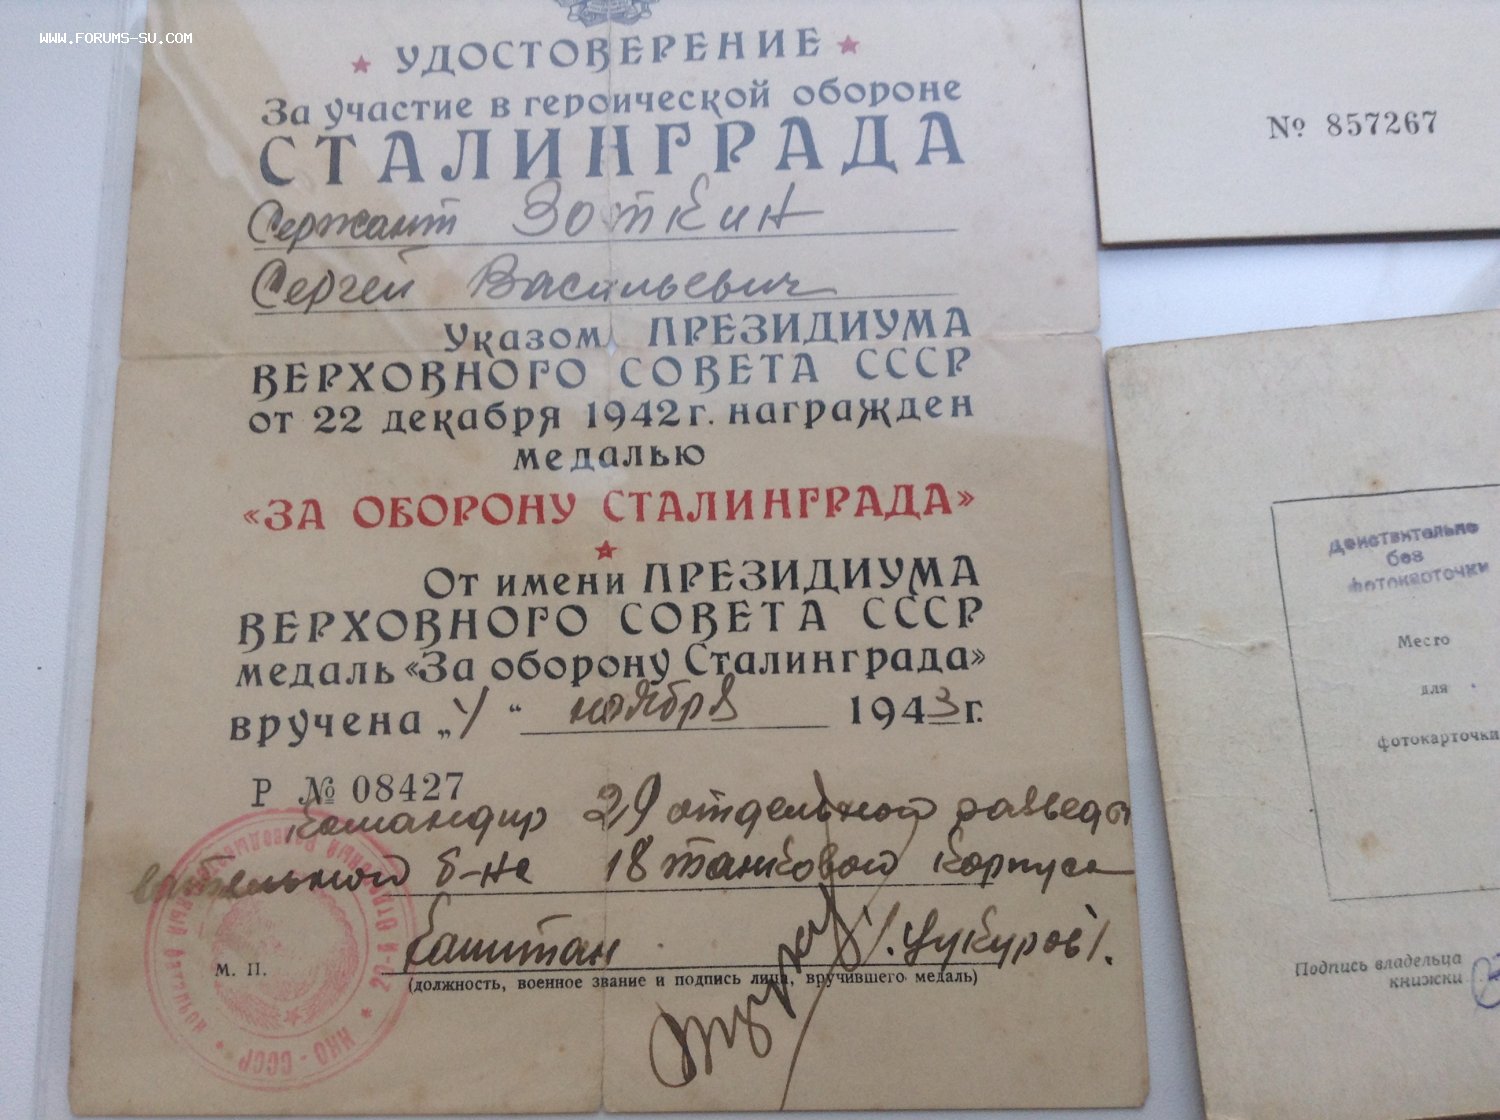 WWW.FORUMS-SU.COM
УДОСТОВЕРЕНИЕ
За участие в героической обороне
СТАЛИНГРАДА
Сержант Зоткин
Сергей Васильевич
Указом ПРЕЗИДИУМА
ВЕРХОВНОГО СОВЕТА СССР
от 22 декабря 1942 г. награжден
медалью
«ЗА ОБОРОНУ СТАЛИНГРАДА»
От имени ПРЕЗИДИУМА
ВЕРХОВНОГО СОВЕТА СССР
медаль «За оборону Сталинграда»
вручена „ “ ноября 1943 г.
Р № 08427
Командир 29 отдельного разведы
вательного б-на 18 танкового корпуса
Капитан
М. П.
(должность, военное звание и подпись лица, вручившего медаль)
НКО - СССР
№ 857267
действительно
без
фотокарточки
Место
для
фотокарточки
Подпись владельца
книжки